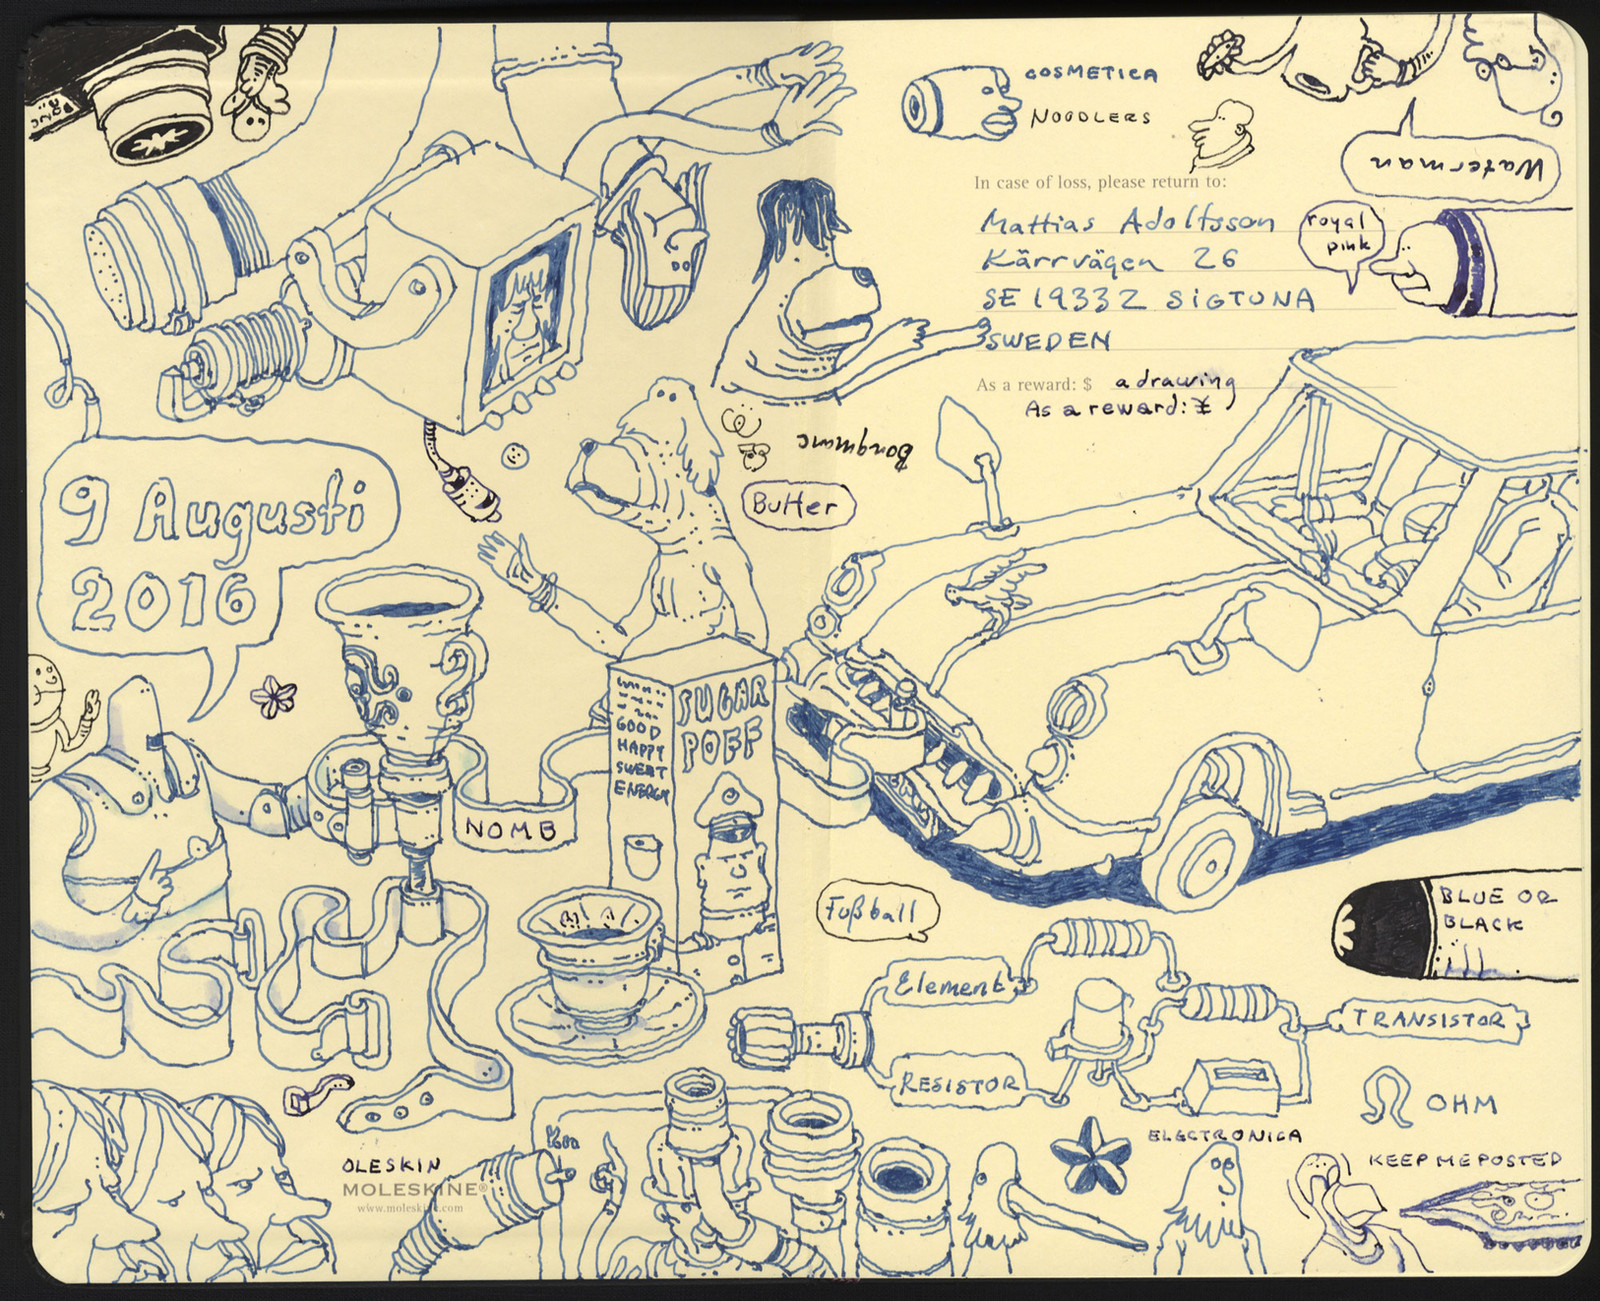 COSMETICA
NOODLERS
Waterman
In case of loss, please return to:
Mattias Adolfsson
Kärrvägen 26
SE 19332 SIGTUNA
SWEDEN
royal
pink
As a reward: $ a drawing
As a reward: ¥
Butter
9 Augusti
2016
SUGAR
POFF
GOOD
HAPPY
SWEAT
ENERGY
NOMB
Fußball
BLUE OR
BLACK
ill
Element
TRANSISTOR
RESISTOR
OHM
ELECTRONICA
KEEP ME POSTED
OLESKIN
MOLESKINE®
www.moleskine.com